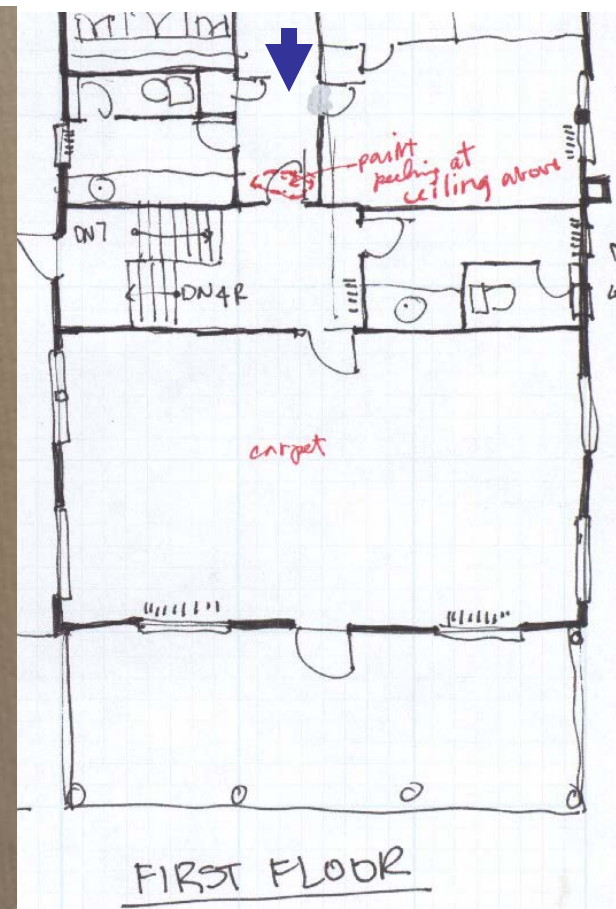 paint
peeling at
ceiling above
DN7
DN4R
carpet
FIRST FLOOR